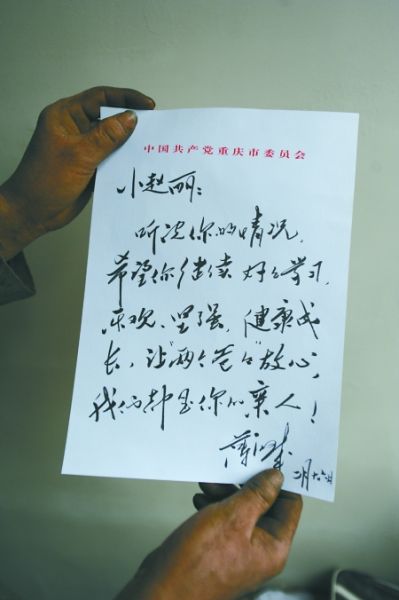 中国共产党重庆市委员会
小赵丽：
听说你的情况，
希望你继续好好学习，
乐观、坚强，健康成
长，让“两个爸爸”放心，
我们都是你的亲人！
二月十六日